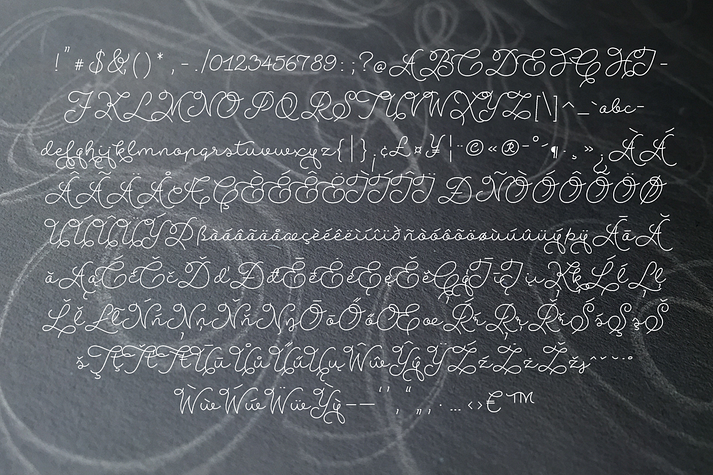 ! " # $ & ( ) * , - . / 0123456789 : ; ? @ A B C D E F G H I -
J K L M N O P Q R S T U V W X Y Z [ \ ] ^ _ ` a b c -
d e f g h i j k l m n o p q r s t u v w x y z { | } ¡ ¢ £ ¤ ¥ ¦ ¨ © « ® - ° ´ ¶ · ¸ » ¿ À Á
Â Ã Ä Å Æ Ç È É Ê Ë Ì Í Î Ï Ð Ñ Ò Ó Ô Õ Ö Ø
Ù Ú Û Ü Ý Þ ß à á â ã ä å æ ç è é ê ë ì í î ï ð ñ ò ó ô õ ö ø ù ú û ü ý þ ÿ Ā ā Ă
ă Ą ą Ć ć Č č Ď ď Đ đ Ē ē Ė ė Ę ę Ě ě
Ń ń Ņ ņ Ň ň Ō ō Ő ő Œ œ Ŕ ŕ Ŗ ŗ Ř ř Ś ś Ş ş Š
š Ū ū Ů ů Ű ű Ų ų Ŵ ŵ Ŷ ŷ Ÿ Ź ź Ż ż Ž ž
Ẁ ẁ Ẃ ẃ Ẅ ẅ Ỳ ỳ – — ‘ ’ ‚ “ ” „ · … ‹ › € ™